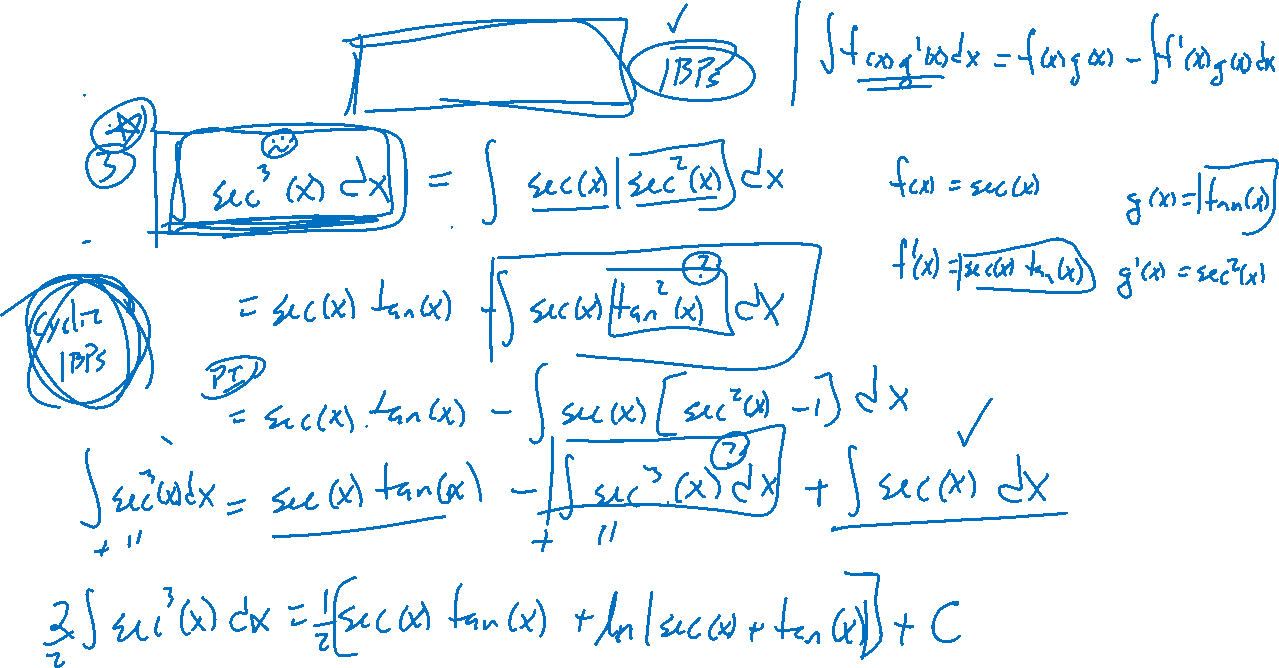 IBPs
∫ f(x) g'(x) dx = f(x) g(x) - ∫ f'(x) g(x) dx
3
∫ sec³(x) dx = ∫ sec(x) sec²(x) dx
f(x) = sec(x) g(x) = tan(x)
f'(x) = sec(x) tan(x) g'(x) = sec²(x)
= sec(x) tan(x) - ∫ sec(x) tan²(x) dx
?
Cyclic
IBPs
PI
= sec(x) · tan(x) - ∫ sec(x) [sec²(x) - 1] dx
∫ sec³(x) dx = sec(x) tan(x) - ∫ sec³(x) dx + ∫ sec(x) dx
?
+ " + "
2/2 ∫ sec³(x) dx = 1/2 [sec(x) tan(x) + ln |sec(x) + tan(x)|] + C